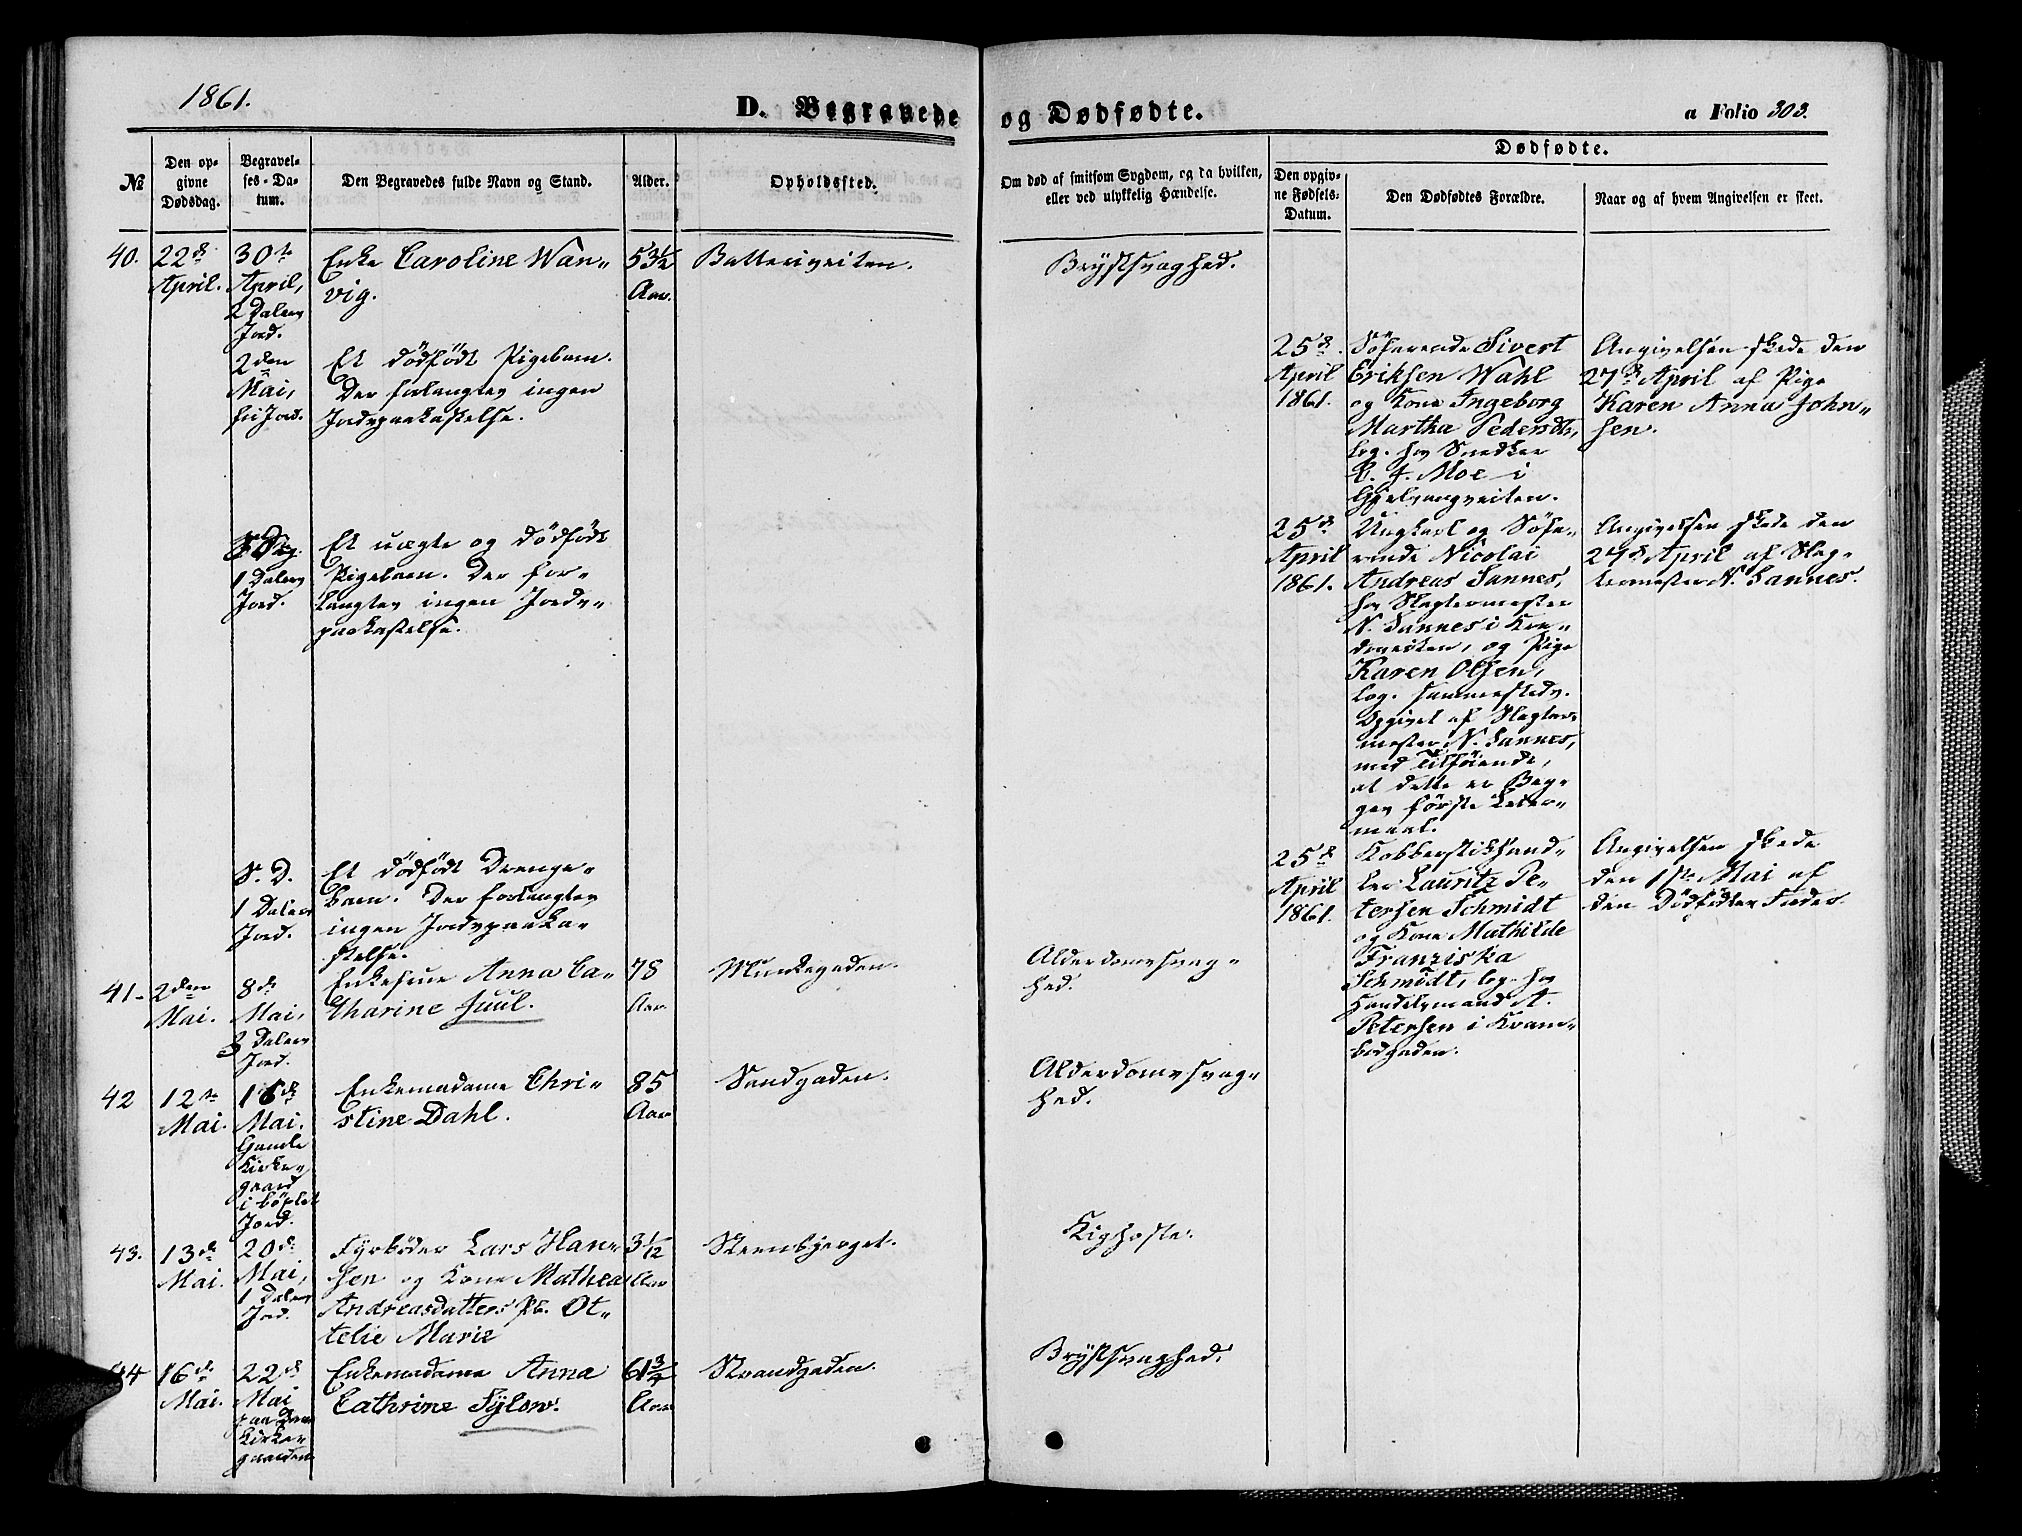 1861.
D. Begravede og Dødfødte.
a Folio 303.
№
Den op-
givne
Dødsdag.
Begravel-
ses-Da-
tum.
Den Begravedes fulde Navn og Stand.
Alder.
Opholdssted.
Om død af smitsom Sygdom, og da hvilken,
eller ved ulykkelig Hændelse.
Dødfødte.
Den opgiv-
ne Fødsels-
Datum.
Den Dødfødtes Forældre.
Naar og af hvem Angivelsen er skeet.
40.
22de
April.
30te
April,
2 Dalers
Jord.
Enke Caroline Wan-
vig.
53½
Aar.
Batteriveiten.
Brystsvaghed.
2den
Mai,
fri Jord.
Et dødfødt Pigebarn.
Der forlangtes ingen
Jordspaakastelse.
25de
April
1861.
Søfarende Sivert
Eriksen Wahl
og Kone Ingeborg
Martha Pedersdtr,
log. hos Snedker
J. Moe i
Gjelvangveiten.
Angivelsen skede den
27de April af Pige
Karen Anna John-
sen.
S. Dag.
1 Dalers
Jord.
Et uægte og dødfødt
Pigebarn. Der for-
langtes ingen Jords-
paakastelse.
25de
April
1861.
Ungkarl og Søfa-
rende Nicolai
Andreas Sannes,
hos Slagtermester
N. Sannes i
og Pige
Karen Olsen,
log. sammesteds.
Opgivet af Slagter-
mester N. Sannes,
med Tilføiende,
at dette er Beg-
ges første Leier-
maal.
Angivelsen skede den
27de April af Slag-
termester N. Sannes.
S. D.
1 Dalers
Jord.
Et dødfødt Drenge-
barn. Der forlangtes
ingen Jordspaaka-
stelse.
25de
April
1861.
Kobberstikhand-
ler Lauritz Pe-
tersen Schmidt
og Kone Mathilde
Franziska
Schmidt, log. hos
Handelsmand A.
Petersen i Kram-
bodgaden.
Angivelsen skede
den 1ste Mai af
den Dødfødtes Fader.
41.
2den
Mai.
8de
Mai,
3 Dalers
Jord.
Enkefrue Anna Ca-
tharine Juul.
78
Aar
Munkegaden.
Alderdomssvag-
hed.
42
12te
Mai.
16de
Mai.
Gamle
Kirke-
gaard
i købt
Jord.
Enkemadame Chri-
stine Dahl.
85
Aar
Sandgaden.
Alderdomssvag-
hed.
43.
13de
Mai.
20de
Mai,
1 Dalers
Jord.
Fyrbøder Lars Han-
sen og Kone Mathea
Andreasdatters Pb. Ot-
telie Marie
3 1/12
Aar
Steenbjerget.
Kighoste.
44
16de
Mai.
22de
Mai
paa
Kirke-
gaarden
Enkemadame Anna
Cathrine Sylow.
61¾
Aar
Strandgaden.
Brystsvaghed.